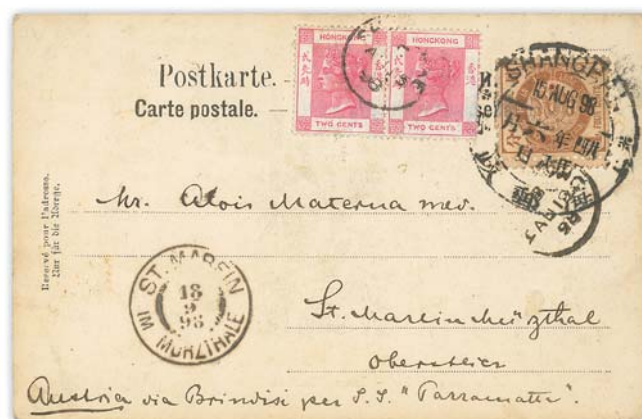 Postkarte.
Carte postale.
HONGKONG
HONGKONG
TWO CENTS
TWO CENTS
SHANGHAI
15 AUG 98
Reservé pour l'adresse.
Nur für die Adresse.
Mr. Alois Materna med.
ST. MAREIN
18
9
98
IM MÜRZTHALE
St. Marein Mürzthal
Obersteier
Austria via Brindisi per S.S. "Parramatta".